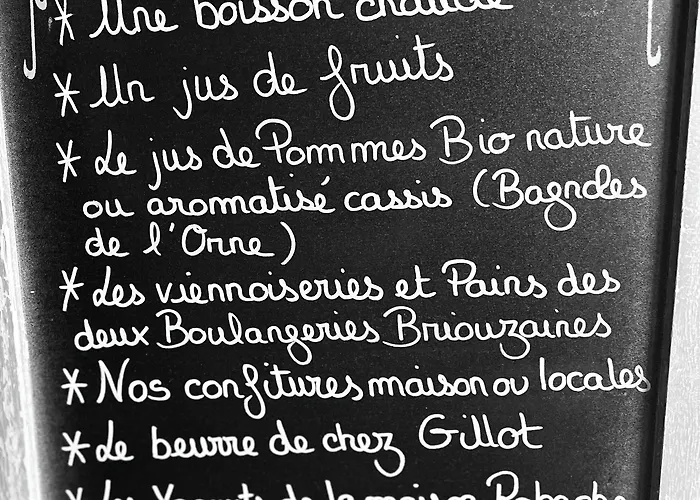 * Une boisson chaude
* Un jus de fruits
* Le jus de Pommes Bio nature
ou aromatisé cassis (Bagnoles
de l'Orne)
* Les viennoiseries et Pains des
deux Boulangeries Briouzaines
* Nos confitures maison ou locales
* Le beurre de chez Gillot
* Les Yaourts de la maison